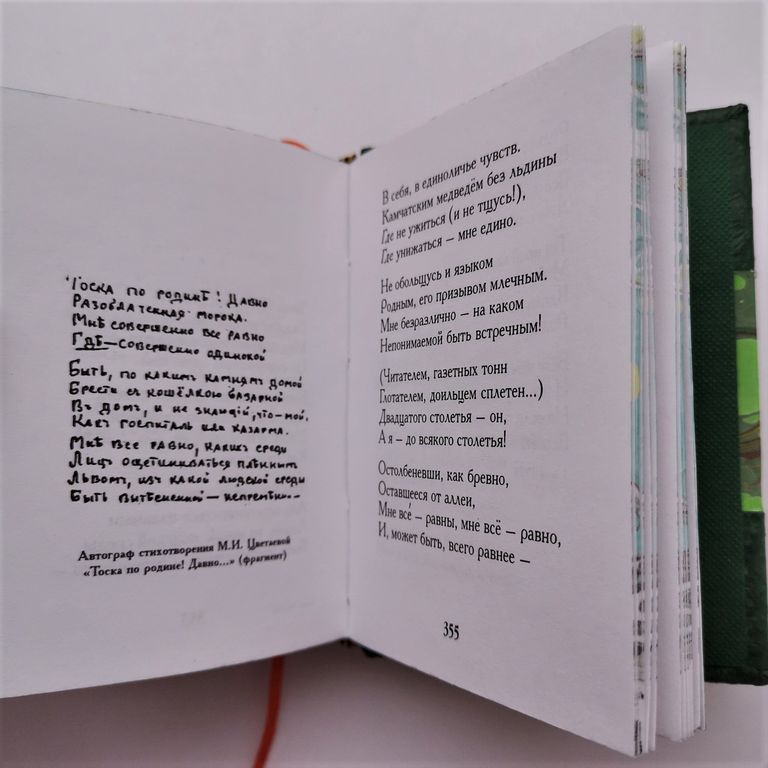 Тоска по родинѣ! Давно
Разоблаченная морока.
Мнѣ совершенно все равно
Гдѣ — совершенно одинокой
Быть, по какимъ камнямъ домой
Брести съ кошёлкою базарной
Въ домъ, и не знающій, что — мой,
Какъ госпиталь или казарма.
Мнѣ все равно, какихъ среди
Лицъ ощетиниваться плѣннымъ
Львомъ, изъ какой людской среды
Быть вытѣсненной — непремѣнно —
Автограф стихотворения М.И. Цветаевой
«Тоска по родине! Давно...» (фрагмент)
В себя, в единоличье чувств.
Камчатским медведём без льдины
Где не ужиться (и не тщусь!),
Где унижаться — мне едино.
Не обольщусь и языком
Родным, его призывом млечным.
Мне безразлично — на каком
Непонимаемой быть встречным!
(Читателем, газетных тонн
Глотателем, доильцем сплетен...)
Двадцатого столетья — он,
А я — до всякого столетья!
Остолбеневши, как бревно,
Оставшееся от аллеи,
Мне все́ — равны, мне всё — равно,
И, может быть, всего равнее —
355